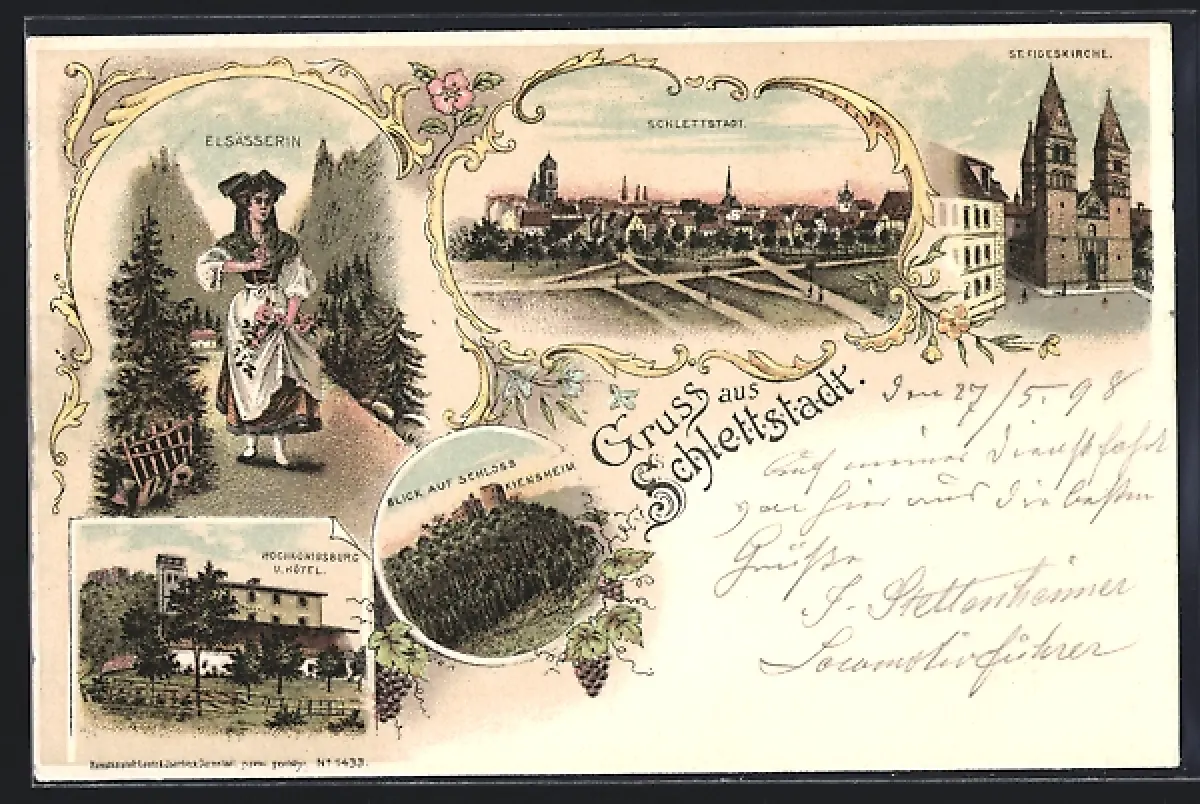 ELSÄSSERIN
SCHLETTSTADT.
ST. FIDESKIRCHE.
Gruss aus
Schlettstadt.
BLICK AUF SCHLOSS
KIENSHEIM
HOCHKÖNIGSBURG
U. HÔTEL.
Den 27/5. 98
Auf meiner Dienstfahrt
von hier aus die besten
Grüße
Locomotivführer
Nº 1433.